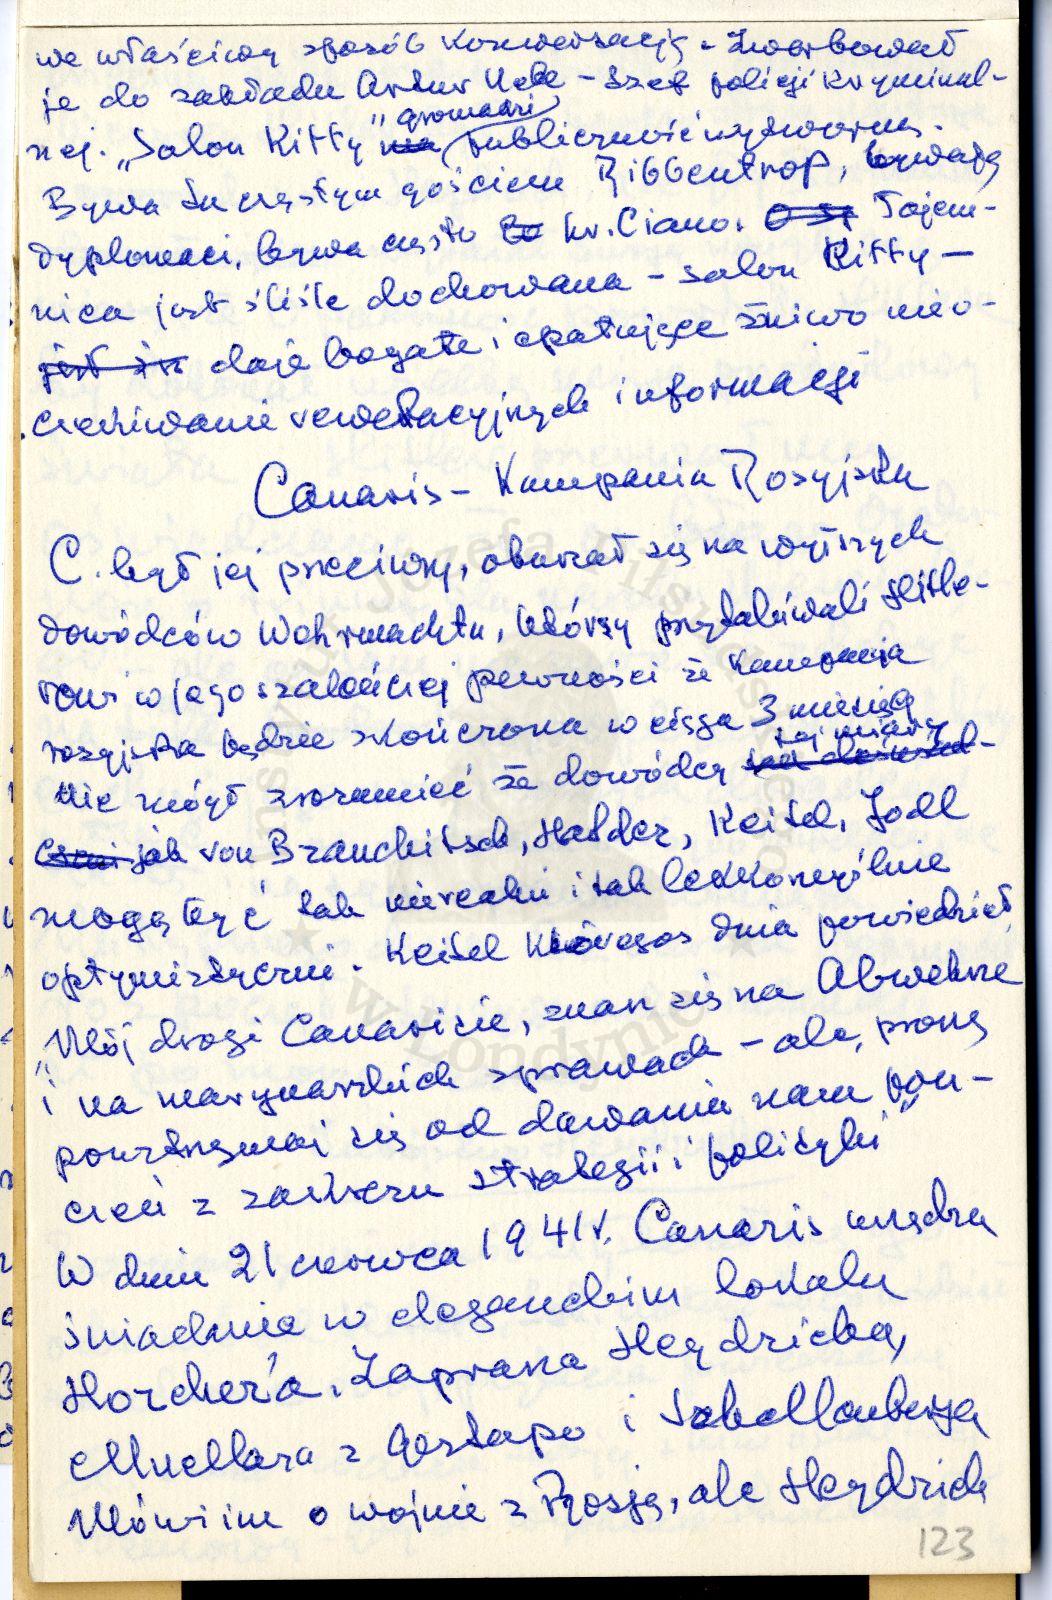 we właściwy sposób konwersację. Zwerbował
je do zakładu Artur Nebe – szef policji kryminal-
nej. „Salon Kitty” gromadzi publiczność wytworną.
Bywa tu częstym gościem Ribbentrop, bywają
dyplomaci, bywa często hr. Ciano. Tajem-
nica jest ściśle dochowana – salon Kitty –
daje bogate i opatrujące żniwo nieo-
czekiwanie rewelacyjnych informacji
Canaris – Kampania Rosyjska
C. był jej przeciwny, oburzał się na wyższych
dowódców Wehrmachtu, którzy przytakiwali Hitle-
rowi w jego szaleńczej pewności że kampania
rosyjska będzie skończona w ciągu 3 miesięcy
Nie mógł zrozumieć że dowódcy tej miary
jak von Brauchitsch, Halder, Keitel, Jodl
mogą być tak nierealni i tak lekkomyślnie
optymistyczni. Keitel któregoś dnia powiedział
„Mój drogi Canarisie, znasz się na Abwehrze
i na marynarskich sprawach – ale, proszę
powstrzymaj się od dawania nam pou-
czeń z zakresu strategii i polityki”
W dniu 21 czerwca 1941 r. Canaris urządza
śniadanie w eleganckim lokalu
Horcher'a. Zaprasza Heydricha,
Muellera z Gestapo i Schellenberga
Mówi im o wojnie z Rosją, ale Heydrich
123
Józefa Piłsudskiego
w Londynie